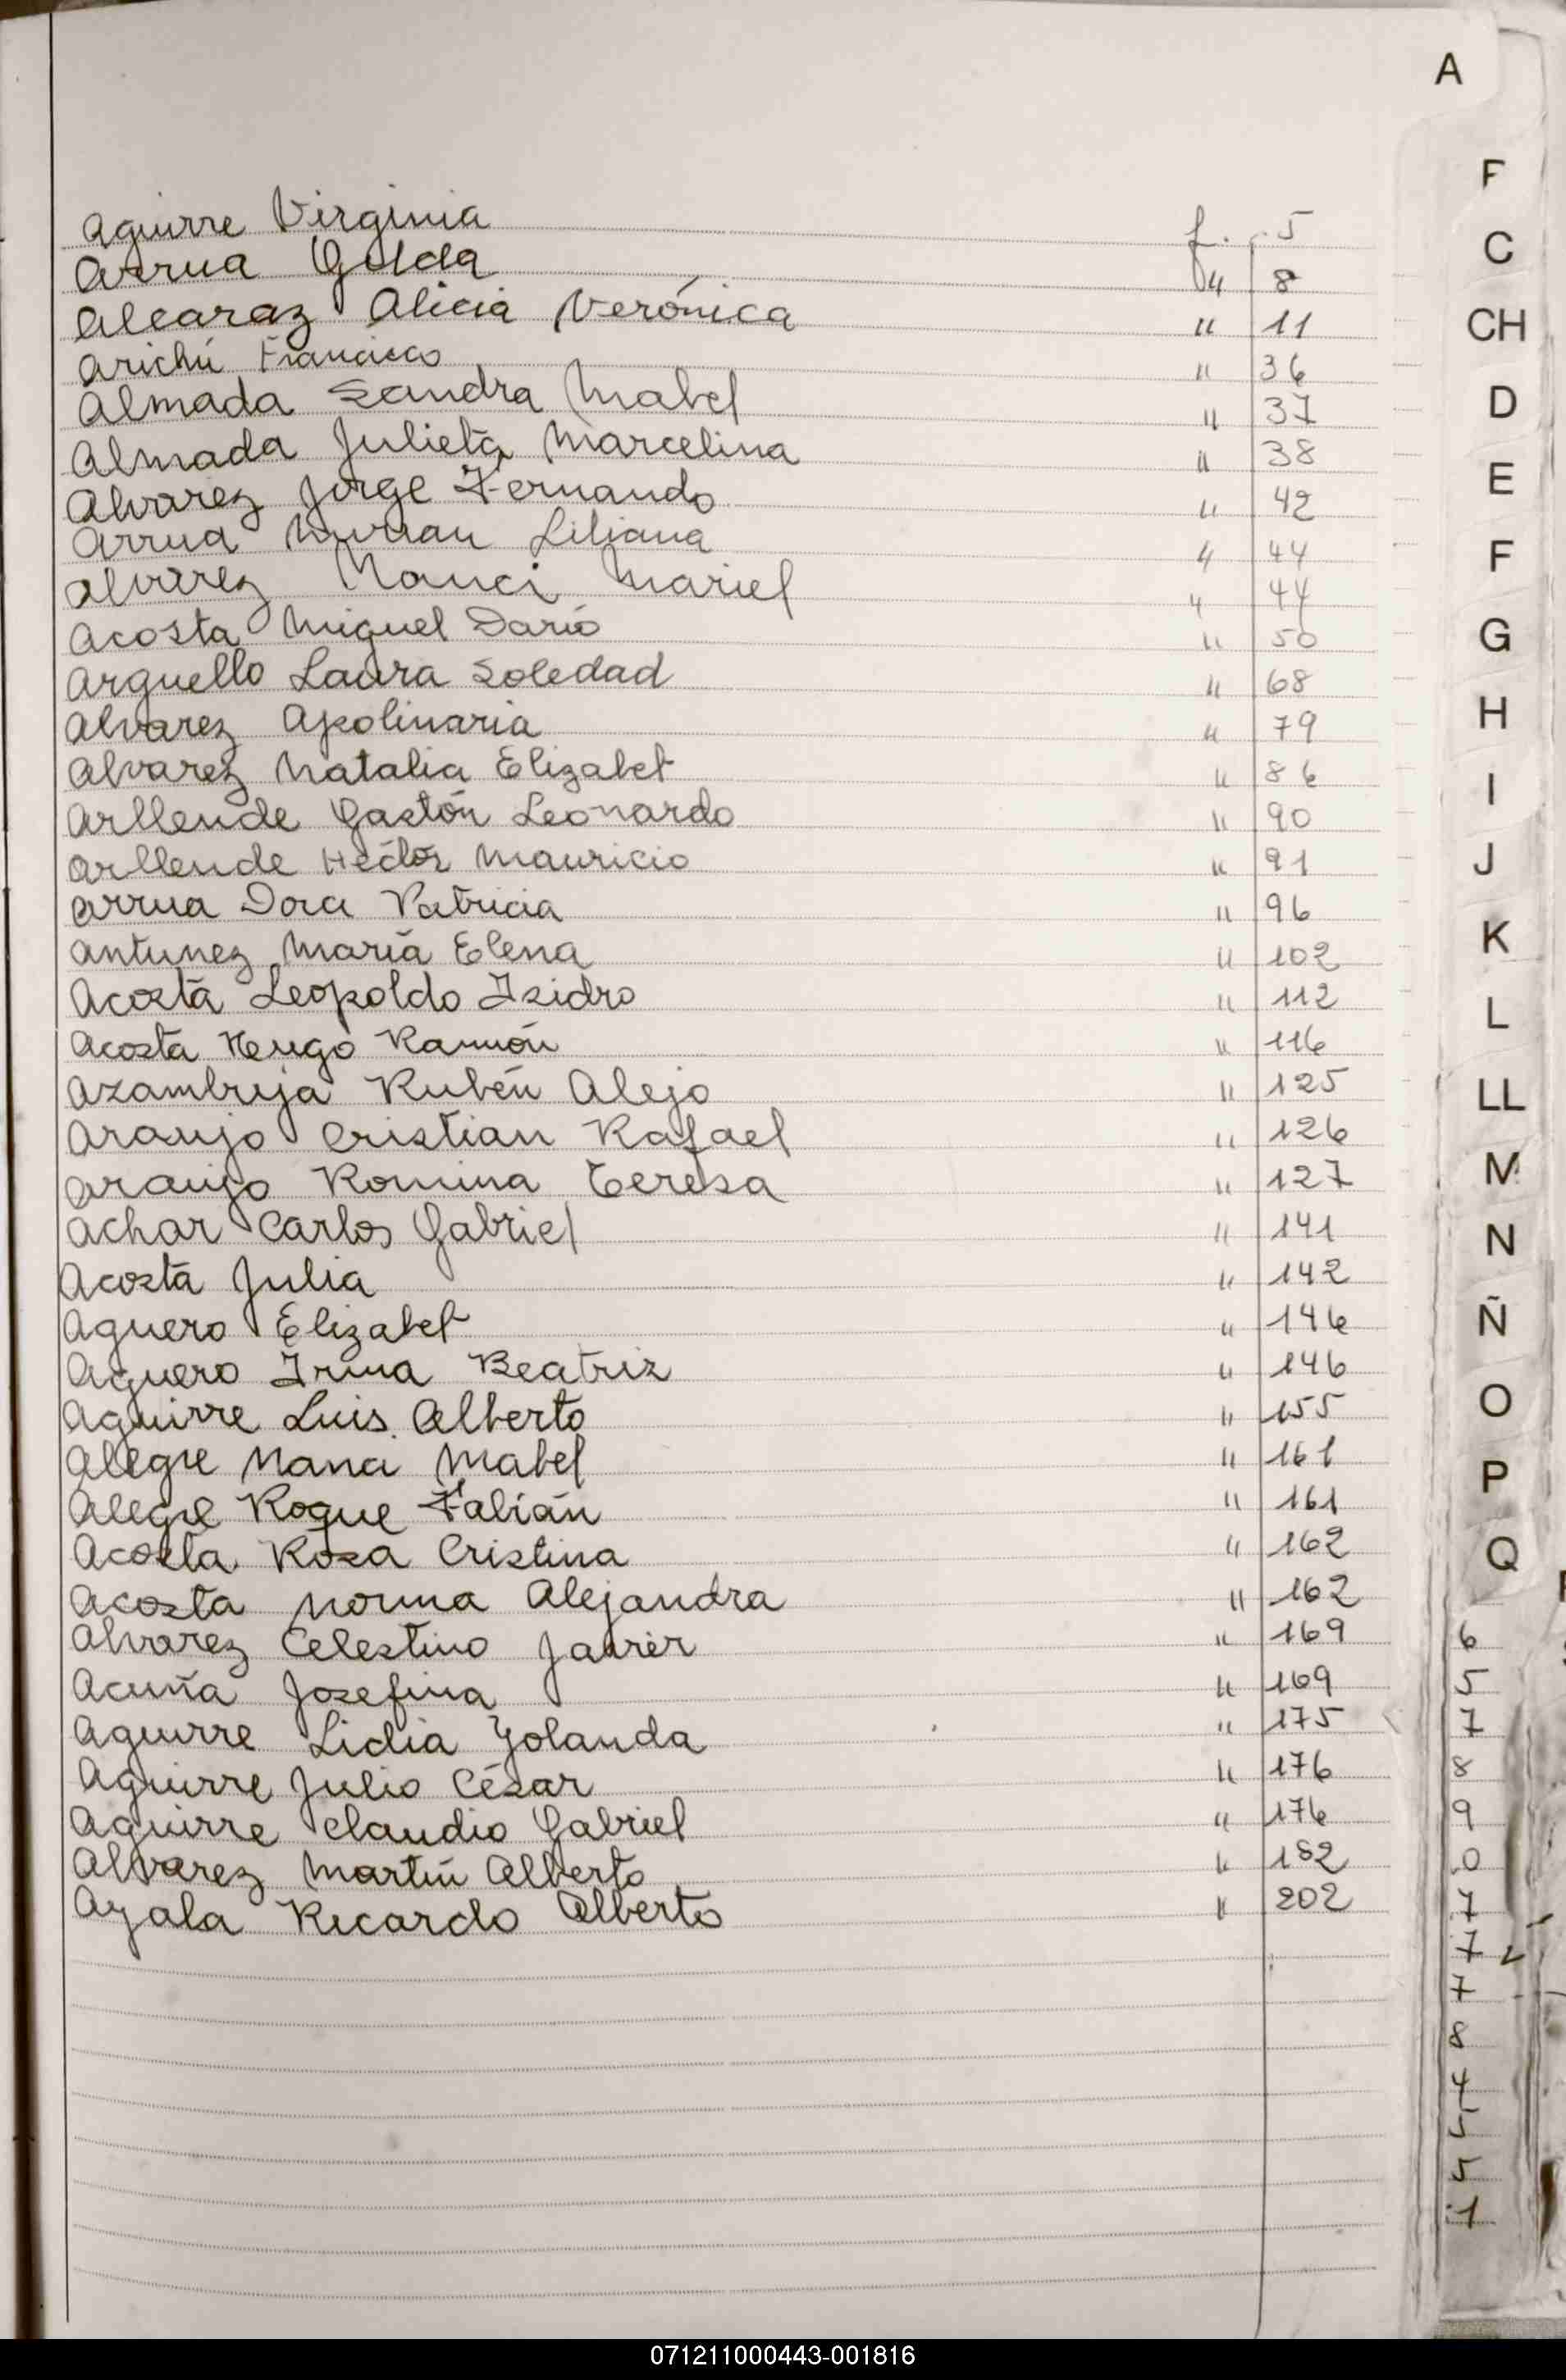 A
Aguirre Virginia f. 5
Arrua Gilda " 8
Alcaraz Alicia Verónica " 11
Arichú Francisco " 36
Almada Sandra Mabel " 37
Almada Julieta Marcelina " 38
Alvarez Jorge Fernando " 42
Arrua Mirian Liliana " 44
Alvarez Nanci Mariel " 44
Acosta Miguel Darió " 50
Arguello Laura Soledad " 68
Alvarez Apolinaria " 79
Alvarez Natalia Elizabet " 86
Arllende Gastón Leonardo " 90
Arllende Hector Mauricio " 91
Arrua Dora Patricia " 96
Antunez Maria Elena " 102
Acosta Leopoldo Isidro " 112
Acosta Hugo Ramón " 116
Azambuja Rubén Alejo " 125
Araujo Cristian Rafael " 126
Araujo Romina Teresa " 127
Achar Carlos Gabriel " 141
Acosta Julia " 142
Aguero Elizabet " 146
Aguero Irma Beatriz " 146
Aguirre Luis Alberto " 155
Alegre Maria Mabel " 161
Alegre Roque Fabián " 161
Acosta Rosa Cristina " 162
Acosta Norma Alejandra " 162
Alvarez Celestino Javier " 169
Acuña Josefina " 169
Aguirre Lidia Yolanda " 175
Aguirre Julio César " 176
Aguirre Claudio Gabriel " 176
Alvarez Martín Alberto " 182
Ayala Ricardo Alberto " 202
F
C
CH
D
E
F
G
H
I
J
K
L
LL
M
N
Ñ
O
P
Q
6
5
7
8
9
0
7
7
7
8
4
5
5
1
071211000443-001816